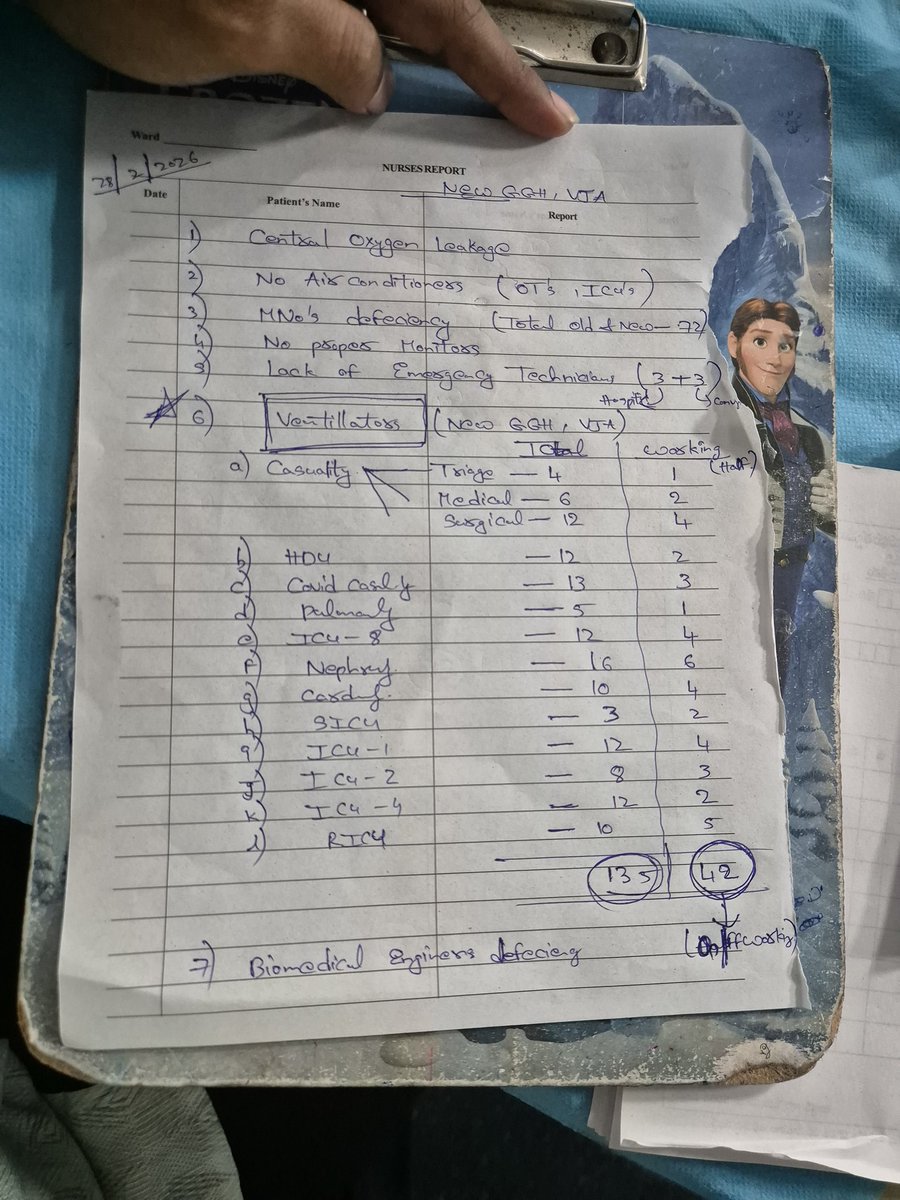 DISNEY
FROZEN
Ward
28/2/2026
NURSES REPORT
New GGH, VJA
Date Patient's Name Report
1) Central Oxygen Leakage
2) No Air conditioners (OT's, ICU's)
3) MNo's defeciency (Total old & New - 72)
No proper Monitors
Lack of Emergency Technicians (3 + 3)
Hospital
6) Ventillators (New GGH, VJA)
Total working
(Half)
a) Casuality Triage - 4 1
Medical - 6 2
Surgical - 12 4
b) HDU - 12 2
c) Covid - 13 3
d) - 5 1
e) ICU - 8 - 12 4
- 16 6
- 10 4
SICU - 3 2
ICU - 1 - 12 4
ICU - 2 - 8 3
k) ICU - 4 - 12 2
l) RICU - 10 5
135 42
7) Biomedical